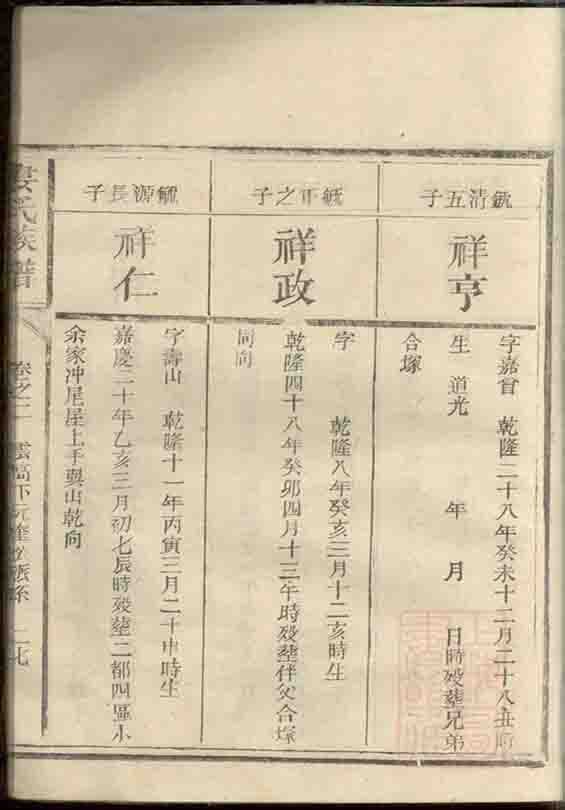 毓清五子
祥亨
字嘉會 乾隆二十八年癸未十二月二十八丑時
生 道光 年 月 日時歿塟兄弟
合塚
毓正之子
祥政
字 乾隆八年癸亥三月十二亥時生
乾隆四十八年癸卯四月十三午時歿塟伴父合塚
同向
毓源長子
祥仁
字壽山 乾隆十一年丙寅三月二十申時生
嘉慶二十年乙亥三月初七辰時歿塟二都四區小
余家冲尾屋上手巽山乾向
氏族譜
卷之二